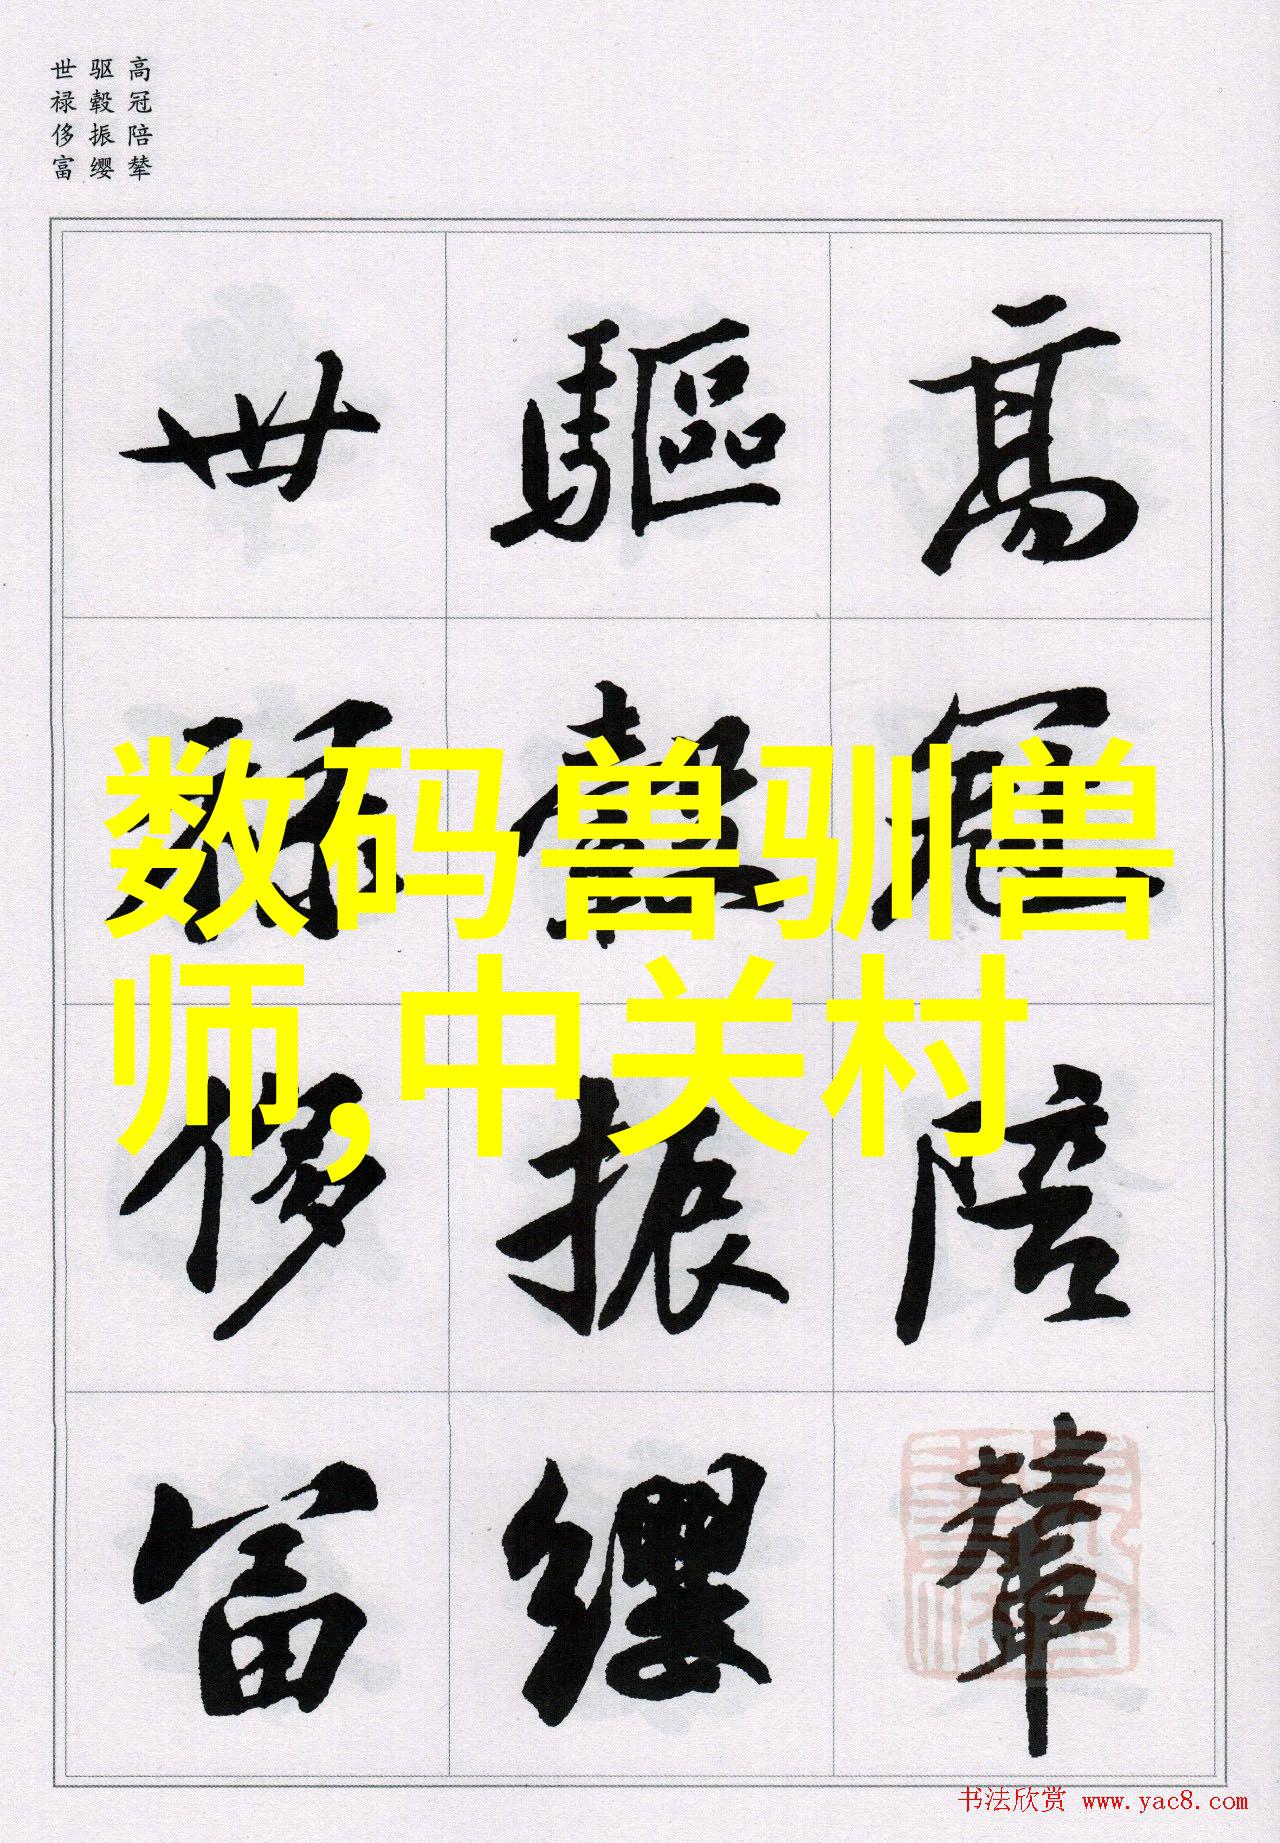 高冠陪辇
驱毂振缨
世禄侈富
高冠陪輦
驅轂振纓
世禄侈富
数码兽驯兽
师,中关村
书法欣赏 www.yac8.com